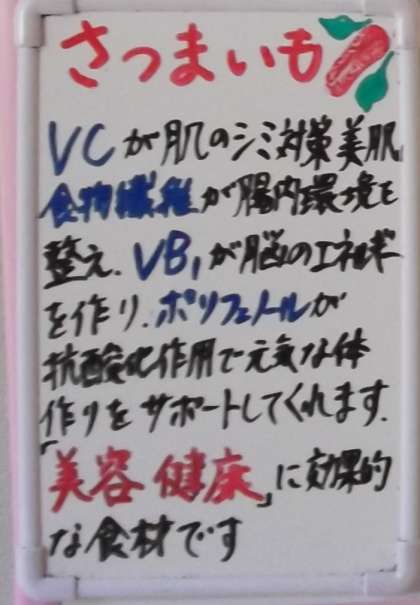 さつまいも
VCが肌のシミ対策美肌
食物繊維が腸内環境を
整え、VB₁が脳のエネルギー
を作り、ポリフェノールが
抗酸化作用で元気な体
作りをサポートしてくれます.
「美容健康」に効果的
な食材です